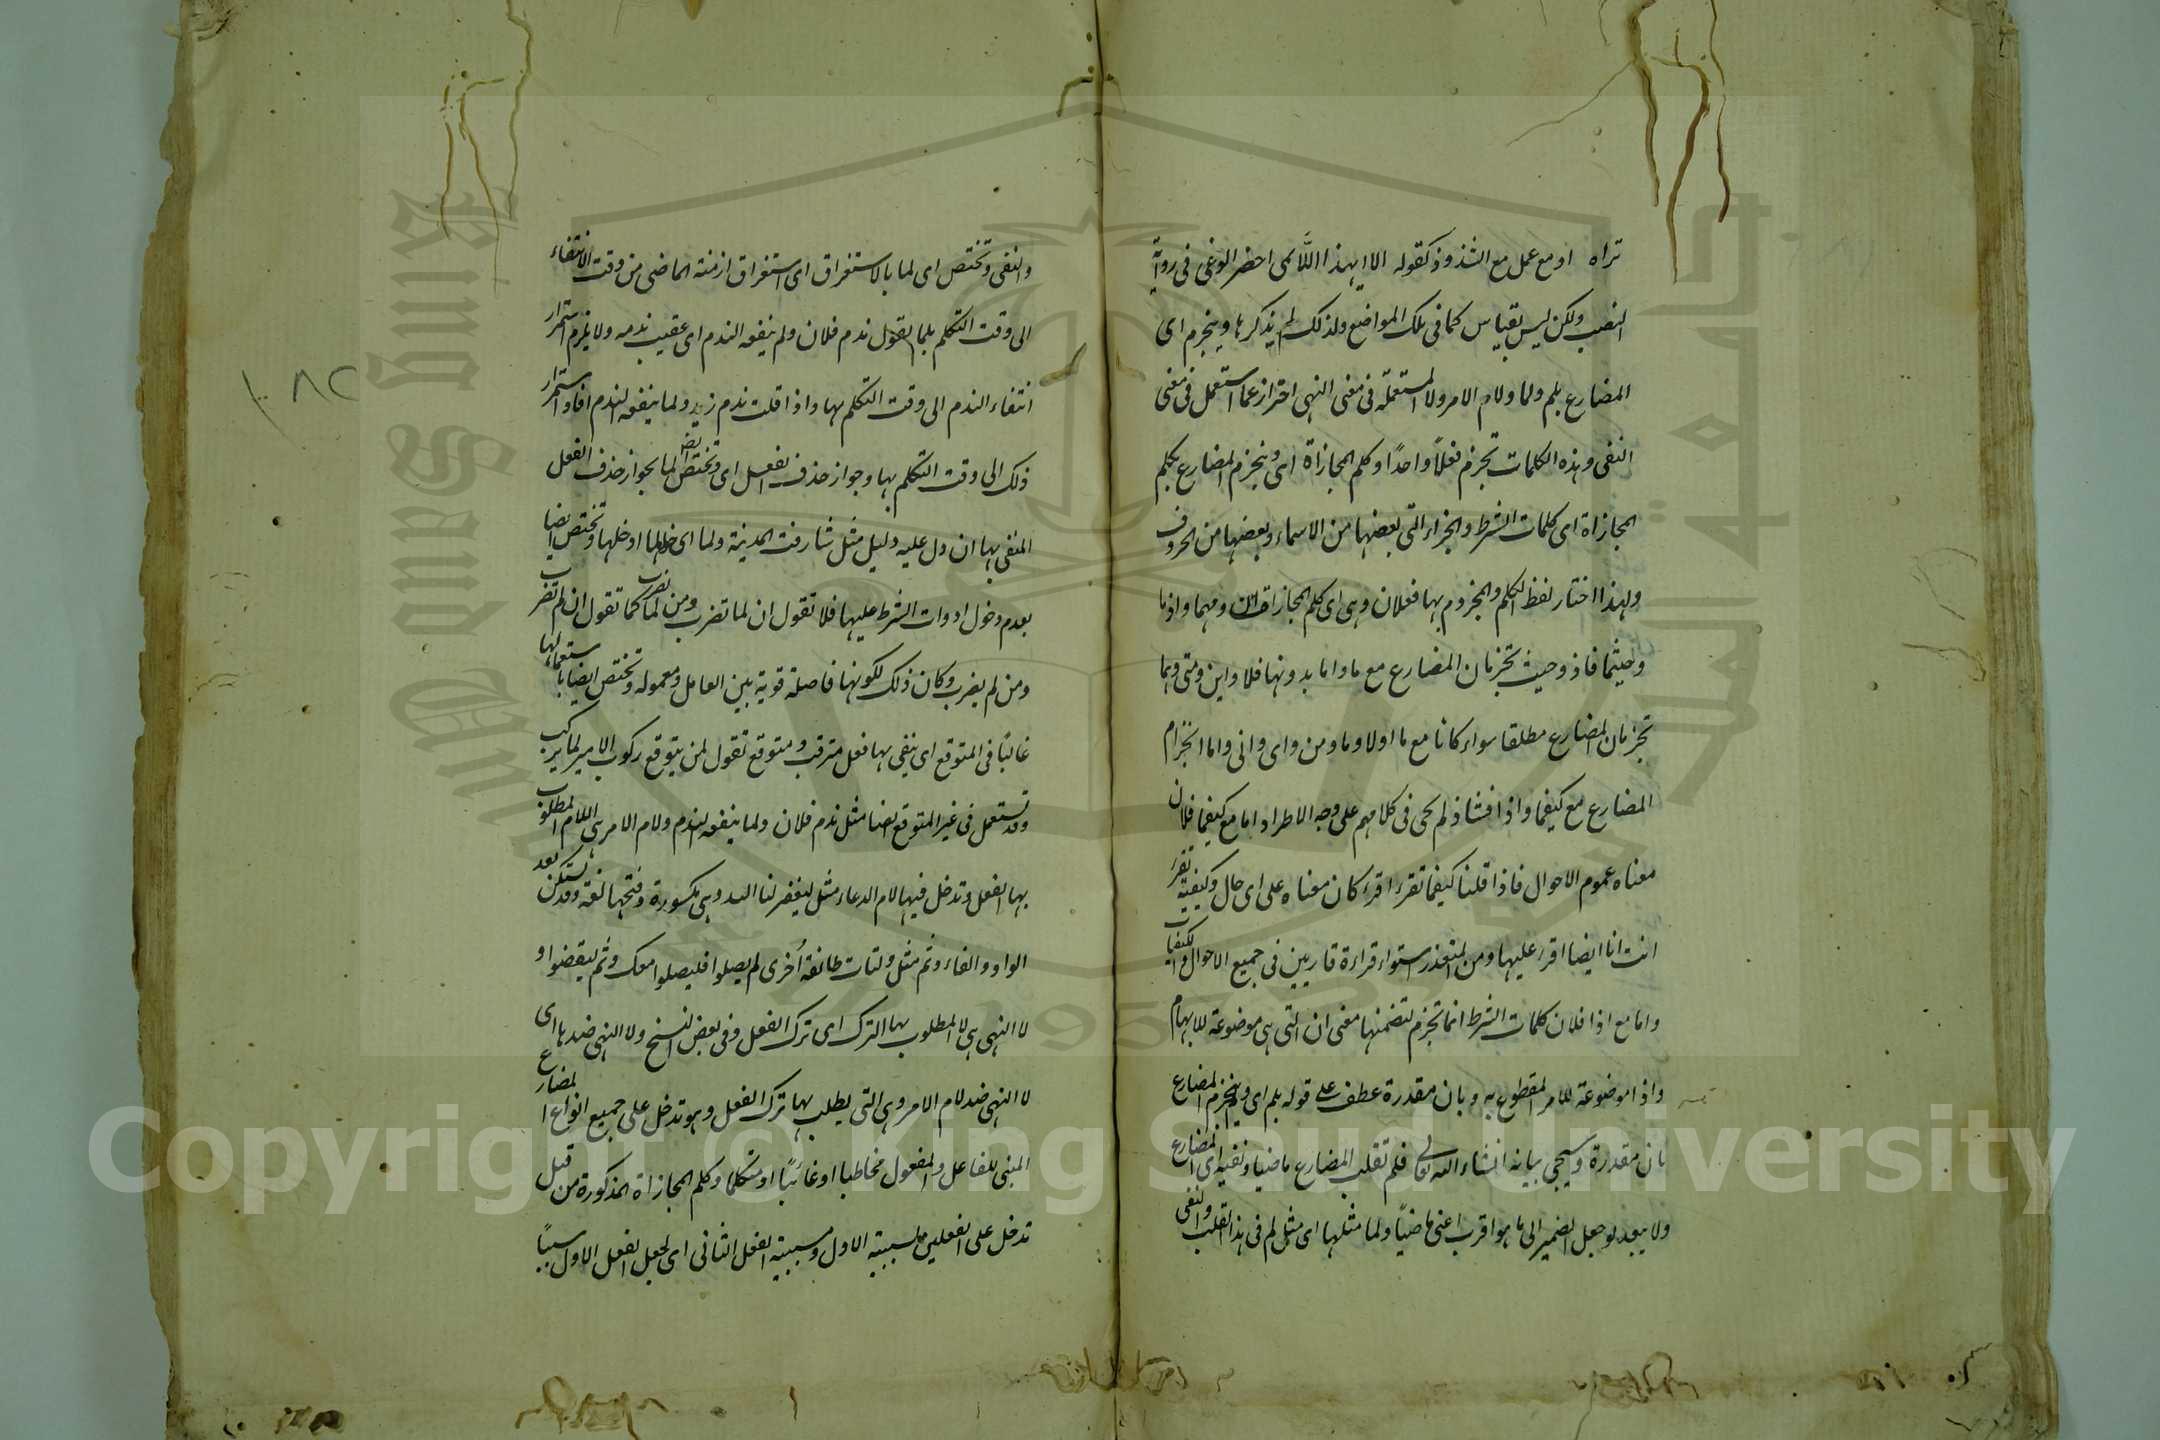 تراه او مع عمل مع الشذوذ كقوله الا ايهذا اللائمى احضر الوغى فى رواية
النصب ولكن ليس بقياس كما فى تلك المواضع ولذلك لم يذكرها وينجزم اى
المضارع بلم ولما ولام الامر ولا المستعملة فى معنى النهى احتراز عما استعمل فى معنى
النفى وهذه الكلمات تجزم فعلاً واحدًا وكلم المجازاة اى وينجزم المضارع بكلم
المجازاة اى كلمات الشرط والجزاء التى بعضها من الاسماء وبعضها من الحروف
ولهذا اختار لفظ الكلم والمجزوم بها فعلان وهى اى كلم المجازاة ان ومهما واذ ما
وحيثما فاذ وحيث تجزمان المضارع مع ما واما بدونها فلا واين ومتى وهما
تجزمان المضارع مطلقا سواء كانا مع ما اولا وما ومن واى وانى واما انجزام
المضارع مع كيفما واذا فشاذ لم يجى فى كلامهم على وجه الاطراد اما مع كيفما فلان
معناه عموم الاحوال فاذا قلنا كيفما تقرء اقرء كان معناه على اى حال وكيفية تقرء
انت انا ايضا اقرء عليها ومن المتعذر استواء قراءة قاريين فى جميع الاحوال والكيفيات
واما مع اذا فلان كلمات الشرط انما تجزم لتضمنها معنى ان التى هى موضوعة للابهام
واذا موضوعة للامر المقطوع به وبان مقدرة عطف على قوله بلم اى وينجزم المضارع
بان مقدرة وسيجى بيانه انشاء الله تعالى فلم لقلب المضارع ماضيا ونفيه اى المضارع
ولا يبعد لو جعل الضمير الى ما هو اقرب اعنى ماضيًا ولما مثلها اى مثل لم فى هذا القلب والنفى
والنفى وتختص اى لما بالاستغراق اى استغراق ازمنة الماضى من وقت الانتفاء
الى وقت التكلم بلما تقول ندم فلان ولم ينفعه الندم اى عقيب ندمه ولا يلزم استمرار
انتفاء الندم الى وقت التكلم بها واذا قلت ندم زيد ولما ينفعه الندم افاد استمرار
ذلك الى وقت التكلم بها وجواز حذف الفعل اى وتختص ايضا لما بجواز حذف الفعل
المنفى بها ان دل عليه دليل مثل شارفت المدينة ولما اى ولما ادخلها وتختص ايضا
بعدم دخول ادوات الشرط عليها فلا تقول ان لما تضرب ومن لما يضرب كما تقول ان لم تضرب
ومن لم يضرب وكان ذلك لكونها فاصلة قوية بين العامل ومعموله وتختص ايضا باستعمالها
غالبًا فى المتوقع اى ينفى بها فعل مترقب ومتوقع تقول لمن يتوقع ركوب الامير لما يركب
وقد تستعمل فى غير المتوقع ايضا مثل ندم فلان ولما ينفعه الندم ولام الامر هى اللام المطلوب
بها الفعل وتدخل فيها لام الدعاء مثل ليغفر لنا الله وهى مكسورة وفتحها لغة وقد تسكن بعد
الواو والفاء وثم مثل ولتات طائفة أخرى لم يصلوا فليصلوا معك وثم ليقضوا و
لا النهى هى لا المطلوب بها الترك اى ترك الفعل وفى بعض النسخ ولا النهى ضدها اى
لا النهى ضد لام الامر وهى التى يطلب بها ترك الفعل وهو تدخل على جميع انواع المضارع
المبنى للفاعل والمفعول مخاطبا او غائبًا او متكلما وكلم المجازاة المذكورة من قبل
تدخل على الفعلين لسببية الاول ومسببية الفعل الثانى اى لجعل الفعل الاول سببًا
١٨٢
Copyright © King Saud University